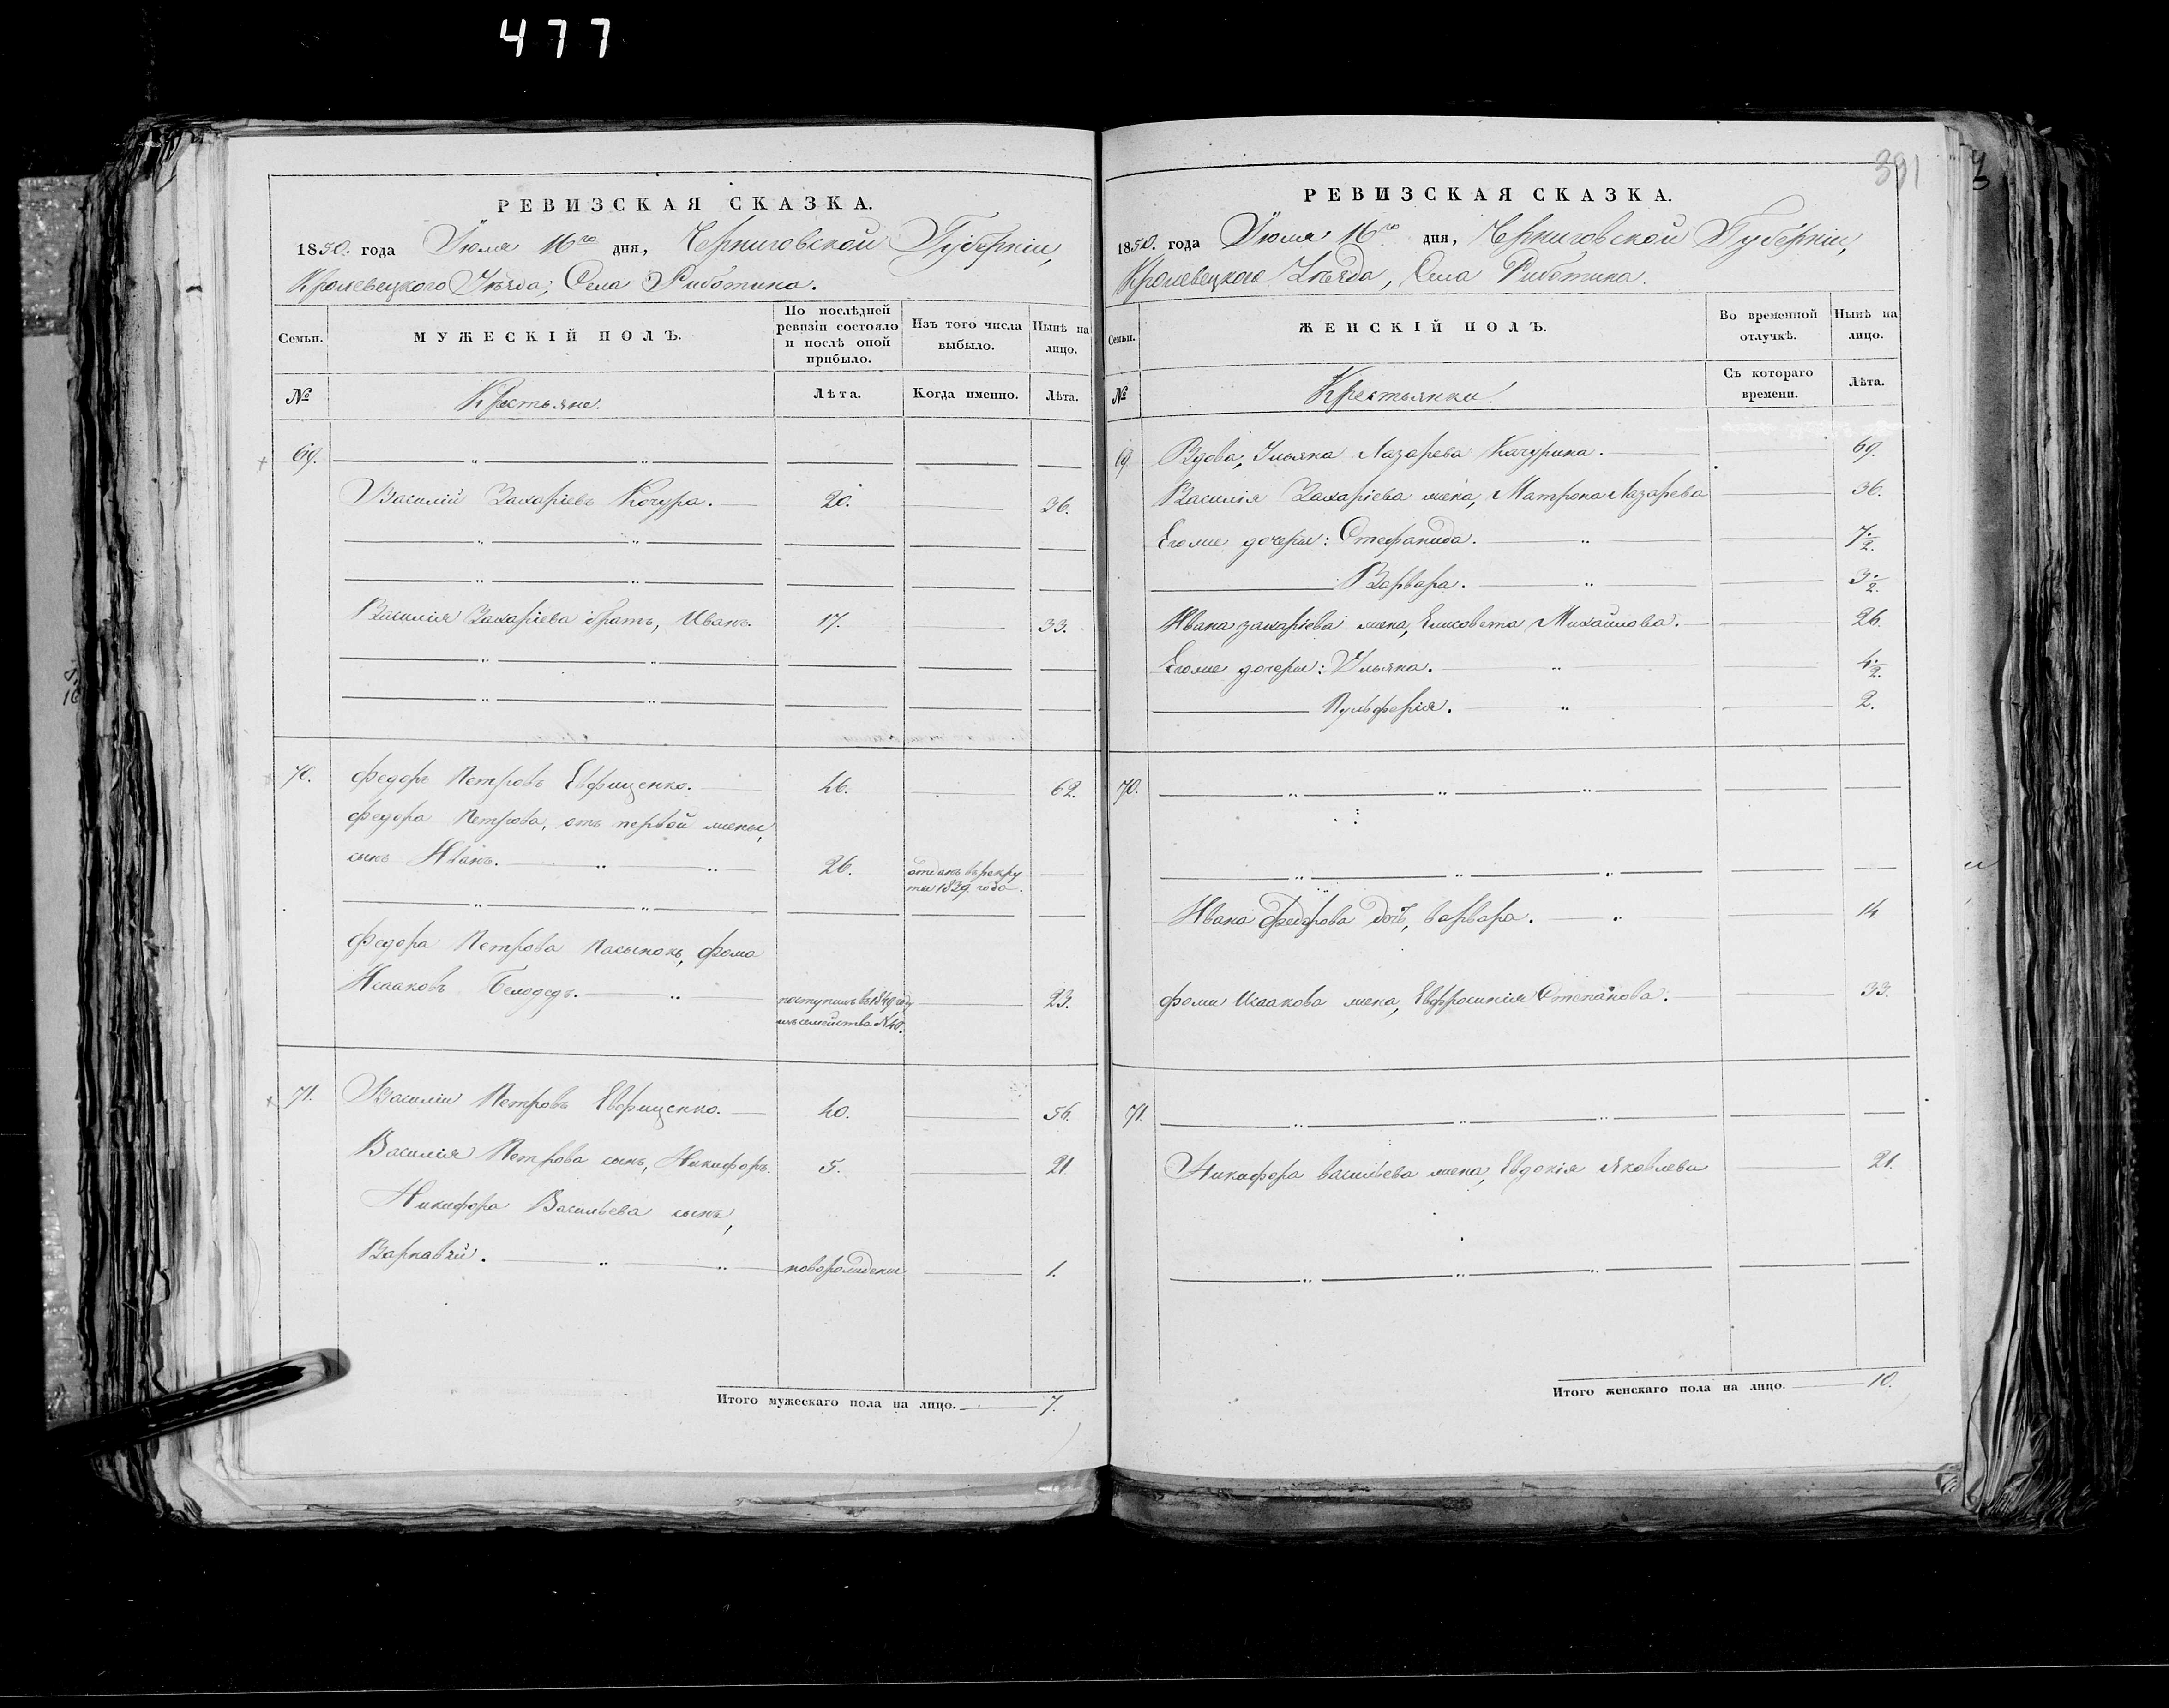 477
РЕВИЗСКАЯ СКАЗКА.
1850. года Іюля 16го дня, Черниговской Губерніи,
Кролевецкого Уѣзда, Села Риботина.
Семьи.
МУЖЕСКІЙ ПОЛЪ.
По послѣдней ревизіи состояло и послѣ оной прибыло.
Изъ того числа выбыло.
Нынѣ на лицо.
№ Крестьяне. Лѣта. Когда именно. Лѣта.
69.
Василій Захаріевъ Кочура. 20. 36.
Василія Захаріева братъ, Иванъ. 17. 33.
70. Федоръ Петровъ Евфищенко. 46. 62.
Федора Петрова, отъ первой жены,
сынъ Иванъ. 26. отданъ в рекру
ты 1839 года.
Федора Петрова пасынокъ, Фома
Исааковъ Белодедъ. поступилъ в 1840 году 23.
изъ семейства № 40.
71. Василій Петровъ Евфищенко. 40. 56.
Василія Петрова сынъ, Никифоръ. 5. 21
Никифора Васильева сынъ,
Варнавій. новорожденн 1.
Итого мужескаго пола на лицо. 7.
391
РЕВИЗСКАЯ СКАЗКА.
1850. года Іюля 16го дня, Черниговской Губерніи,
Кролевецкого Уѣзда, Села Риботина.
Семьи.
ЖЕНСКІЙ ПОЛЪ.
Во временной отлучкѣ.
Нынѣ на лицо.
№ Крестьянки. Съ котораго времени. Лѣта.
69 Вдова, Ульяна Лазарева Качурина. 69.
Василія Захаріева жена, Матрона Лазарева 36.
Егоже дочери: Стефанида. 7½.
Варвара. 3½.
Ивана Захаріева жена, Елисовета Михайлова. 26.
Егоже дочери: Ульяна. 4½.
Пульферія. 2.
70.
Ивана Федорова дочь, Варвара. 14
Фомы Исаакова жена, Евфросинія Степанова. 33.
71.
Никифора Васильева жена, Евдокія Яковлева 21.
Итого женскаго пола на лицо. 10.